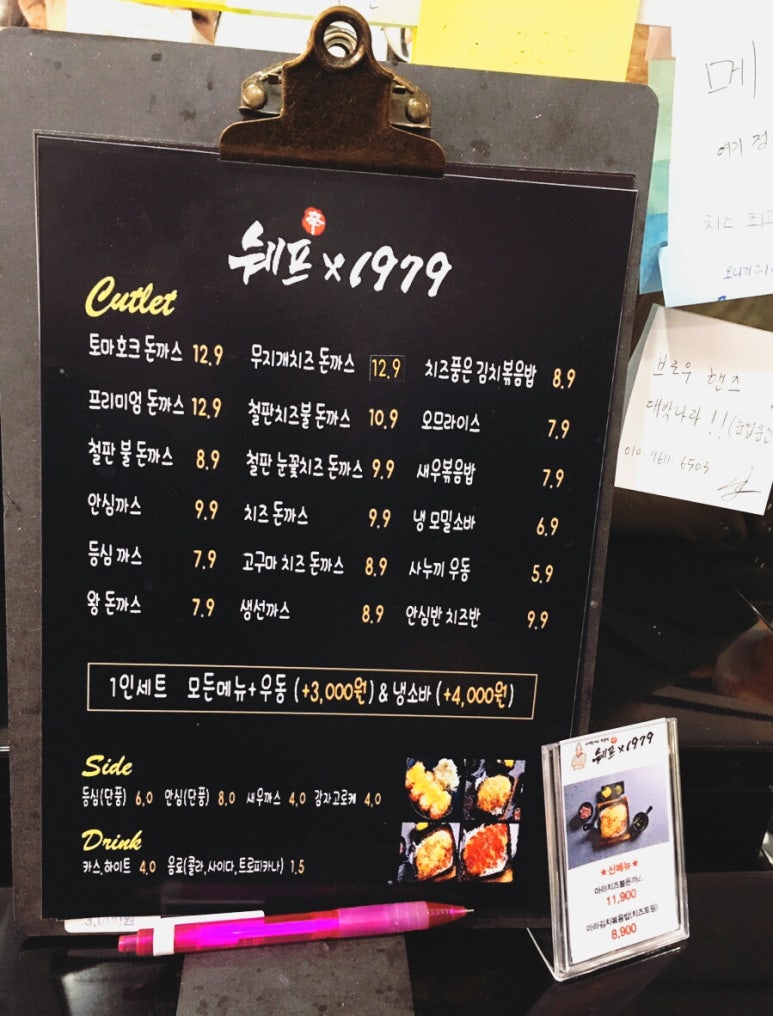 쉐프×1979
Cutlet
토마호크 돈까스 12.9
프리미엄 돈까스 12.9
철판 불 돈까스 8.9
안심까스 9.9
등심 까스 7.9
왕 돈까스 7.9
무지개치즈 돈까스 12.9
철판치즈불 돈까스 10.9
철판 눈꽃치즈 돈까스 9.9
치즈 돈까스 9.9
고구마 치즈 돈까스 8.9
생선까스 8.9
치즈품은 김치볶음밥 8.9
오므라이스 7.9
새우볶음밥 7.9
냉 모밀소바 6.9
사누끼 우동 5.9
안심반 치즈반 9.9
1인세트 모든메뉴+우동 (+3,000원) & 냉소바 (+4,000원)
Side
등심(단품) 6.0 안심(단품) 8.0 새우까스 4.0 감자고로케 4.0
Drink
카스,하이트 4.0 음료(콜라,사이다,트로피카나) 1.5
쉐프×1979
★신메뉴★
마라치즈불돈까스
11,900
마라김치볶음밥(치즈토핑)
8,900
3,000원
메
여기 정
치즈 최고
브로우 핸즈
대박나라!!
010-9611-6503